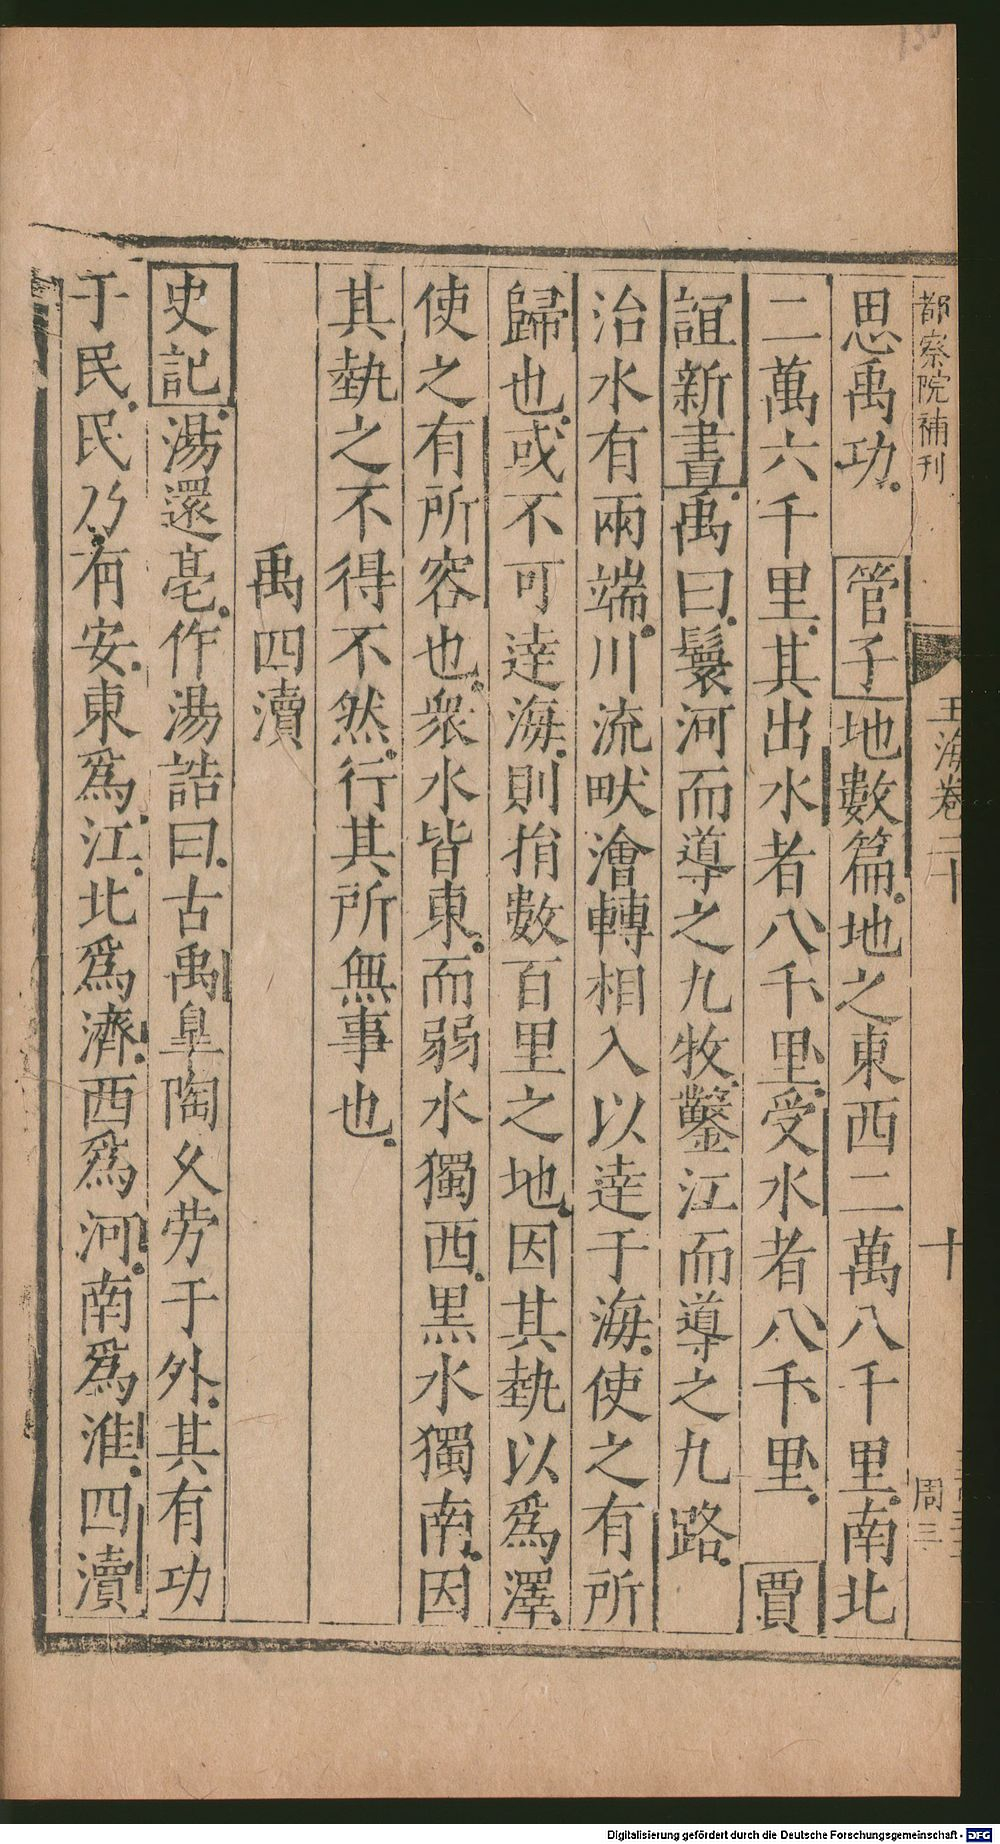 都察院補刊
玉海卷二十
十
周三
思禹功 管子地數篇地之東西二萬八千里南北
二萬六千里其出水者八千里受水者八千里 賈
誼新書禹曰鬟河而導之九牧鑿江而導之九路
治水有兩端川流畎澮轉相入以達于海使之有所
歸也或不可達海則捐數百里之地因其埶以爲澤
使之有所容也衆水皆東而弱水獨西黑水獨南因
其埶之不得不然行其所無事也
禹四瀆
史記湯還亳作湯誥曰古禹皐陶久劳于外其有功
于民民乃有安東爲江北爲濟西爲河南爲淮四瀆
Digitalisierung gefördert durch die Deutsche Forschungsgemeinschaft - DFG